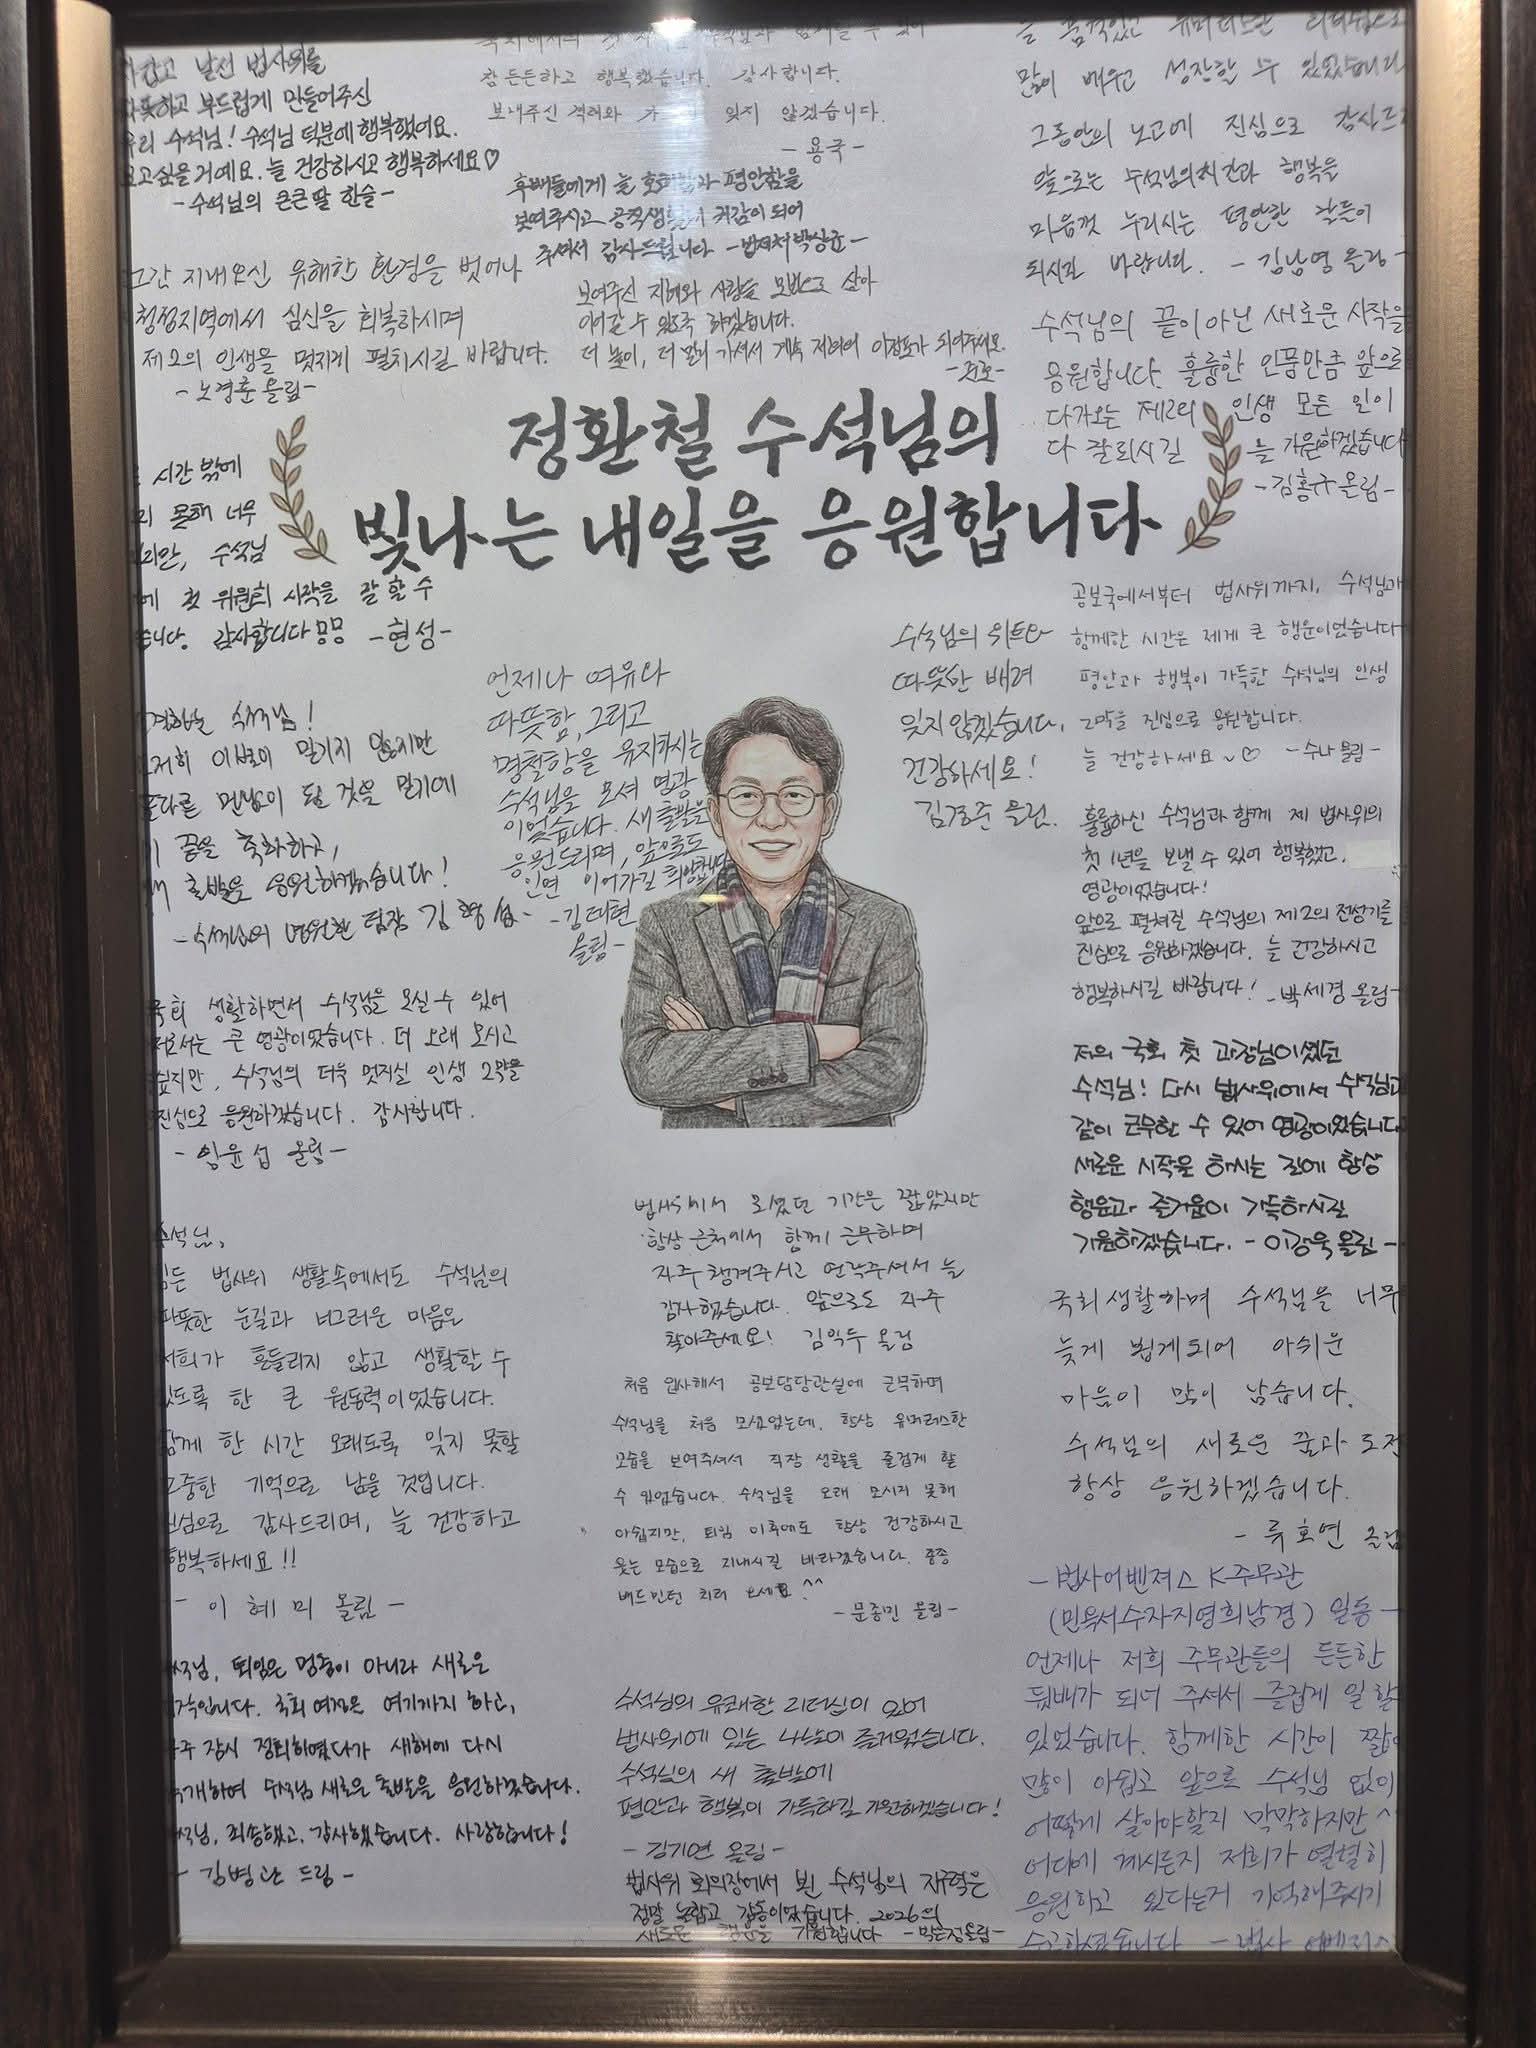 날선 법사위를
부드럽게 만들어주신
수석님! 수석님 덕분에 행복했어요.
보고싶을거예요. 늘 건강하시고 행복하세요♡
- 수석님의 큰큰딸 한슬 -
참 든든하고 행복했습니다. 감사합니다.
보내주신 격려와 잊지 않겠습니다.
- 용국 -
후배들에게 늘 평안함을
보여주시고 귀감이 되어
주셔서 감사드립니다
많이 배우고 성장할 수 있었습니다
그동안의 노고에 진심으로
앞으로는 수석님의 시간과 행복을
마음껏 누리시는 평안한 날들이
되시길 바랍니다. - 김남영 올림 -
그간 지내오신 유해한 환경을 벗어나
청정지역에서 심신을 회복하시며
제2의 인생을 멋지게 펼치시길 바랍니다.
- 노경훈 올림 -
보여주신 지혜와 사랑을 모범으로 삼아
이어갈 수 있도록 하겠습니다.
더 높이, 더 멀리 가셔서 계속 저희의 이정표가 되어주세요.
수석님의 끝이 아닌 새로운 시작을
응원합니다. 훌륭한 인품만큼 앞으로
다가오는 제2의 인생 모든 일이
다 잘되시길 늘 기원하겠습니다
- 김홍규 올림 -
정환철 수석님의
빛나는 내일을 응원합니다
시간밖에
못해 너무
수석님
첫 위원회 시작을 잘 할 수
감사합니다 - 현성 -
수석님!
저희 이별이 믿기지 않지만
또다른 만남이 될 것을 믿기에
끝을 축하하고,
출발을 응원하겠습니다!
- 수석님의 영원한 팀장 김형섭 -
언제나 여유와
따뜻함, 그리고
평정함을 유지하시는
수석님을 모셔 영광
이었습니다. 새출발을
응원드리며, 앞으로도
인연 이어가길 희망합니다
- 김태현
올림 -
수석님의 위트와
따뜻한 배려
잊지 않겠습니다.
건강하세요!
김경준 올림.
공보국에서부터 법사위까지, 수석님과
함께한 시간은 제게 큰 행운이었습니다
평안과 행복이 가득한 수석님의 인생
2막을 진심으로 응원합니다.
늘 건강하세요~♡ - 수나 올림 -
훌륭하신 수석님과 함께 제 법사위의
첫 1년을 보낼 수 있어 행복했고,
영광이었습니다!
앞으로 펼쳐질 수석님의 제2의 전성기를
진심으로 응원하겠습니다. 늘 건강하시고
행복하시길 바랍니다! - 박세경 올림 -
국회 생활하면서 수석님을 모실 수 있어
저로서는 큰 영광이었습니다. 더 오래 모시고
싶지만, 수석님의 더욱 멋지실 인생 2막을
진심으로 응원하겠습니다. 감사합니다.
- 임윤섭 올림 -
저의 국회 첫 과장님이셨던
수석님! 다시 법사위에서 수석님과
같이 근무할 수 있어 영광이었습니다
새로운 시작을 하시는 길에 항상
행운과 즐거움이 가득하시길
기원하겠습니다. - 이강욱 올림 -
수석님,
힘든 법사위 생활속에서도 수석님의
따뜻한 눈길과 너그러운 마음은
저희가 흔들리지 않고 생활할 수
있도록 한 큰 원동력이었습니다.
함께 한 시간 오래도록 잊지 못할
소중한 기억으로 남을 것입니다.
진심으로 감사드리며, 늘 건강하고
행복하세요!!
- 이혜미 올림 -
법사위에서 모셨던 기간은 짧았지만
항상 근처에서 함께 근무하며
자주 챙겨주시고 연락주셔서 늘
감사했습니다. 앞으로도 자주
찾아주세요! 김익두 올림
처음 입사해서 공보담당관실에 근무하며
수석님을 처음 모셨었는데, 항상 유머러스한
모습을 보여주셔서 직장 생활을 즐겁게 할
수 있었습니다. 수석님을 오래 모시지 못해
아쉽지만, 퇴임 이후에도 항상 건강하시고
웃는 모습으로 지내시길 바라겠습니다. 종종
배드민턴 치러 오세요!^^
- 문종민 올림 -
국회 생활하며 수석님을 너무
늦게 뵙게되어 아쉬운
마음이 많이 남습니다.
수석님의 새로운 꿈과 도전
항상 응원하겠습니다.
- 류호연 올림
수석님, 퇴임은 멈춤이 아니라 새로운
시작입니다. 국회 여정은 여기까지 하고,
잠시 정퇴하였다가 새해에 다시
수석님 새로운 출발을 응원하겠습니다.
수석님, 죄송했고, 감사했습니다. 사랑합니다!
- 김병관 드림 -
수석님의 유쾌한 리더십이 있어
법사위에 있는 나날이 즐거웠습니다.
수석님의 새 출발에
평안과 행복이 가득하길 기원하겠습니다!
- 김기연 올림 -
법사위 회의장에서 뵌 수석님의 저력은
정말 놀랍고 감동이었습니다. 2026의
새로운 행운을 기원합니다
- 법사어벤져스 K-주무관
(민욱서수자지영희남경) 일동 -
언제나 저희 주무관들의 든든한
뒷배가 되어 주셔서 즐겁게 일할
있었습니다. 함께한 시간이 짧
많이 아쉽고 앞으로 수석님 없이
어떻게 살아야할지 막막하지만^
어디에 계시든지 저희가 열렬히
응원하고 있다는거 기억해주시기
수고하셨습니다 - 법사 어벤져스